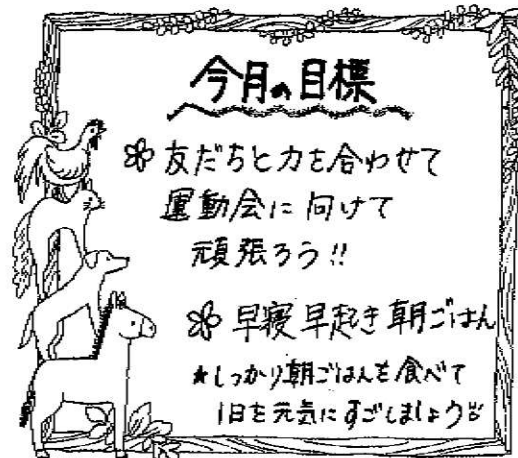 今月の目標
友だちと力を合わせて
運動会に向けて
頑張ろう!!
早寝早起き朝ごはん
★しっかり朝ごはんを食べて
1日を元気にすごしましょう